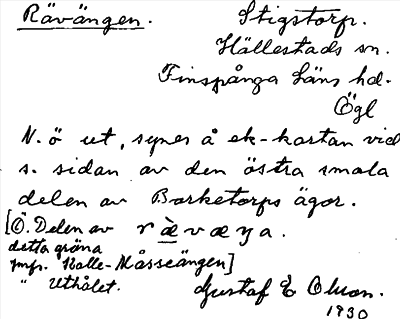 Rävängen. Stigstorp.
Hällestads sn.
Finspånga läns hd.
Ögl
N. ö ut, synes å ek-kartan vid
s. sidan av den östra smala
delen av Borketorps ägor.
[Ö. Delen av rævæŋa.
detta gröna
jmfr. Kalle-Måsseängen]
" Uthålet.
Gustaf E Olson.
1930